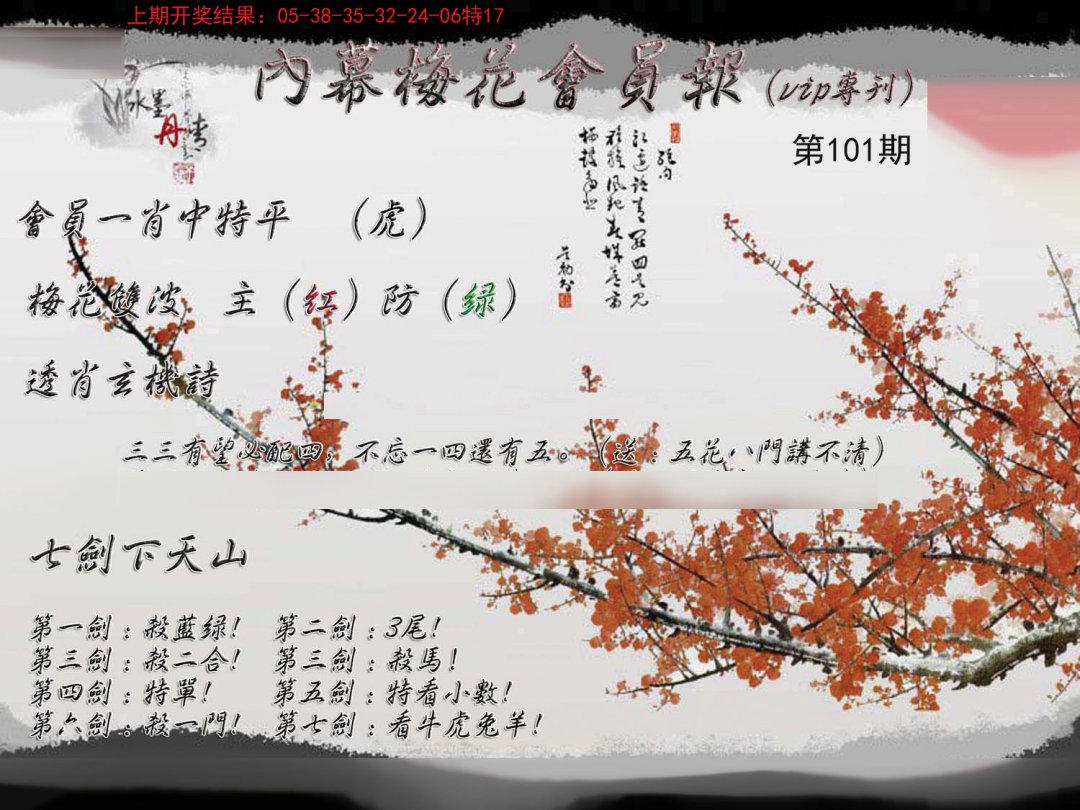 上期开奖结果：05-38-35-32-24-06特17
內幕梅花會員報（vip專刊）
水墨
丹青
第101期
會員一肖中特平　（虎）
梅花雙波　主（红）防（绿）
透肖玄機詩
三三有望必配四，不忘一四還有五。（送：五花八門講不清）
七劍下天山
第一劍：殺藍绿！　第二劍：3尾！
第三劍：殺二合！　第三劍：殺馬！
第四劍：特單！　第五劍：特看小數！
第六劍：殺一門！　第七劍：看牛虎兔羊！